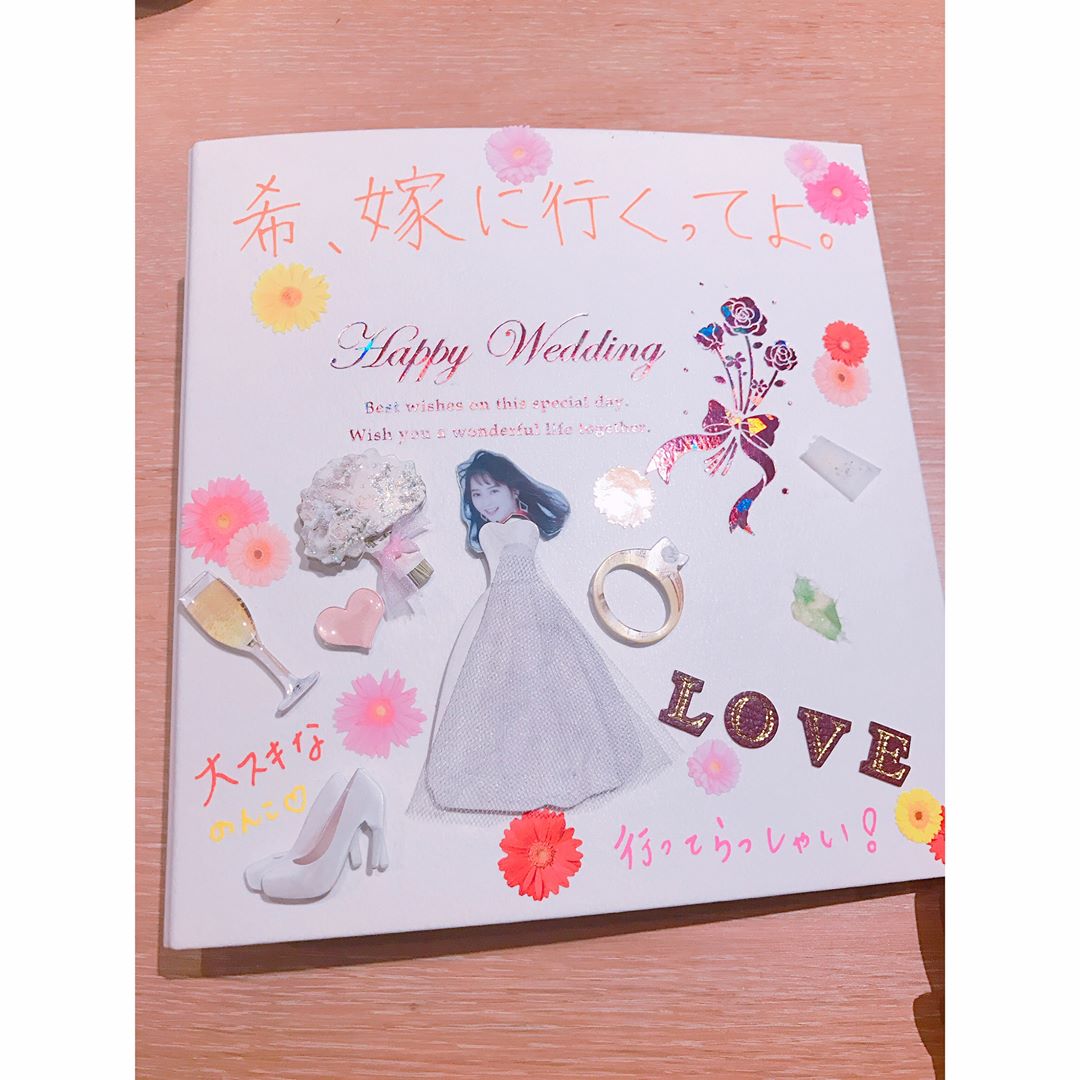 希、嫁に行くってよ。
Happy Wedding
Best wishes on this special day.
Wish you a wonderful life together.
LOVE
大スキな
のんこ♡
行ってらっしゃい！